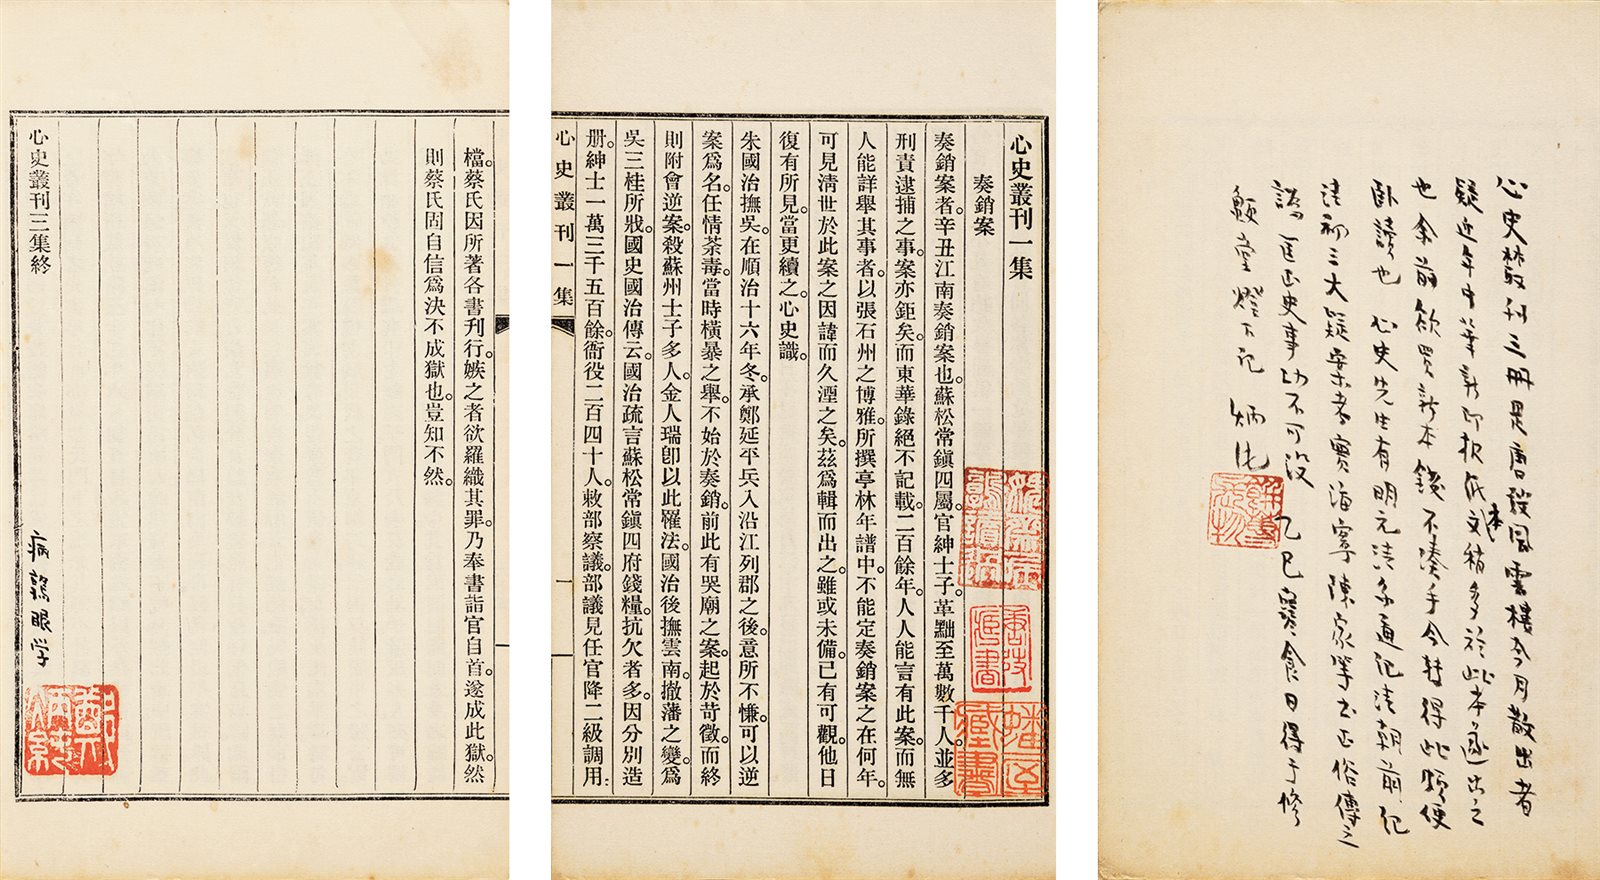 心史叢刊三冊是唐弢風雲樓今月散出者
疑近年中華新印報紙本文稍多於此本遂出之
也余前欲買新本錢不湊手今轉得此頗便
臥讀也 心史先生有明元清系通紀清朝前紀
清初三大疑案考實海寧陳家等书正俗傳之
謬匡正史事功不可没 乙巳寒食日得于修
堂燈下記 炳
心史叢刊一集
奏銷案
奏銷案者。辛丑江南奏銷案也。蘇松常鎮四屬。官紳士子。革黜至萬數千人。並多
刑責逮捕之事。案亦鉅矣。而東華錄絕不記載。二百餘年。人人能言有此案。而無
人能詳舉其事者。以張石州之博雅。所撰亭林年譜中。不能定奏銷案之在何年。
可見清世於此案之因諱而久湮之矣。茲爲輯而出之。雖或未備。已有可觀。他日
復有所見。當更續之。心史識。
朱國治撫吳。在順治十六年冬。承鄭延平兵入沿江列郡之後。意所不慊。可以逆
案爲名。任情荼毒。當時橫暴之舉。不始於奏銷。前此有哭廟之案。起於苛徵。而終
則附會逆案。殺蘇州士子多人。金人瑞卽以此罹法。國治後撫雲南。撤藩之變。爲
吳三桂所戕。國史國治傳云。國治疏言蘇松常鎮四府錢糧。抗欠者多。因分別造
册。紳士一萬三千五百餘。衙役二百四十人。敕部察議。部議見任官降二級調用
心史叢刊 一集
一
唐弢藏書
檔。蔡氏因所著各書刊行。嫉之者欲羅織其罪。乃奉書詣官自首。遂成此獄。然
則蔡氏固自信爲決不成獄也。豈知不然。
心史叢刊三集終
鄭炳純